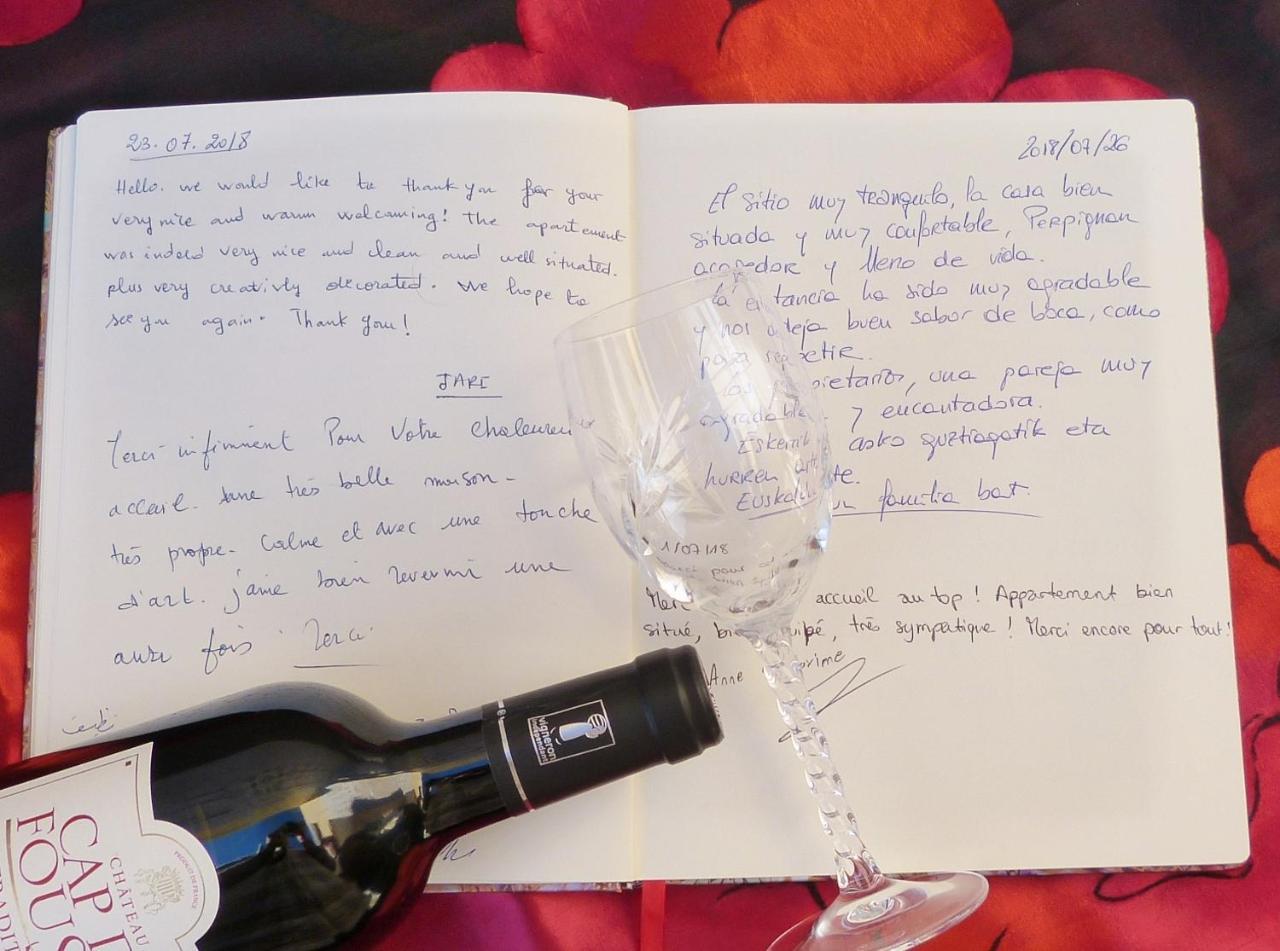 23.07.2018
Hello. we would like to thank you for your
very nice and warm welcoming! the apartement
was indeed very nice and clean and well situated.
plus very creativly decorated. We hope to
see you again. Thank you!
JARI
Merci infiniment Pour Votre
accueil. une très belle maison.
très propre. Calme et avec une touche
d'art. j'aime bien revenir une
autre fois. Merci.
2018/07/26
El sitio muy tranquilo, la casa bien
situada y muy confortable, Perpignan
acogedor y lleno de vida.
La estancia ha sido muy agradable
y nos deja buen sabor de boca, como
para repetir.
Los propietarios, una pareja muy
agradable y encantadora.
Eskerrik asko guztiagatik eta
hurren arte.
familia bat.
1/07/18
Merci accueil au top! Appartement bien
situé, bien équipé, très sympatique! Merci encore pour tout!
Anne
vigneron
indépendant
CHÂTEAU
CAP
FOUS
TRADIT